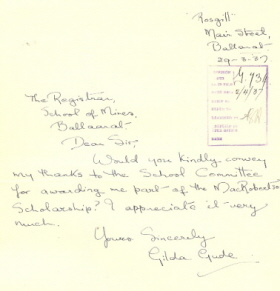 "Rosgill"
Mair Street,
Ballarat
29-3-37
The Registrar,
School of Mines,
Ballaarat.
Dear Sir,
Would you kindly convey
my thanks to the School Committee
for awarding me part of the MacRobertson
Scholarship? I appreciate it very
much.
Yours Sincerely
Gilda Gude.